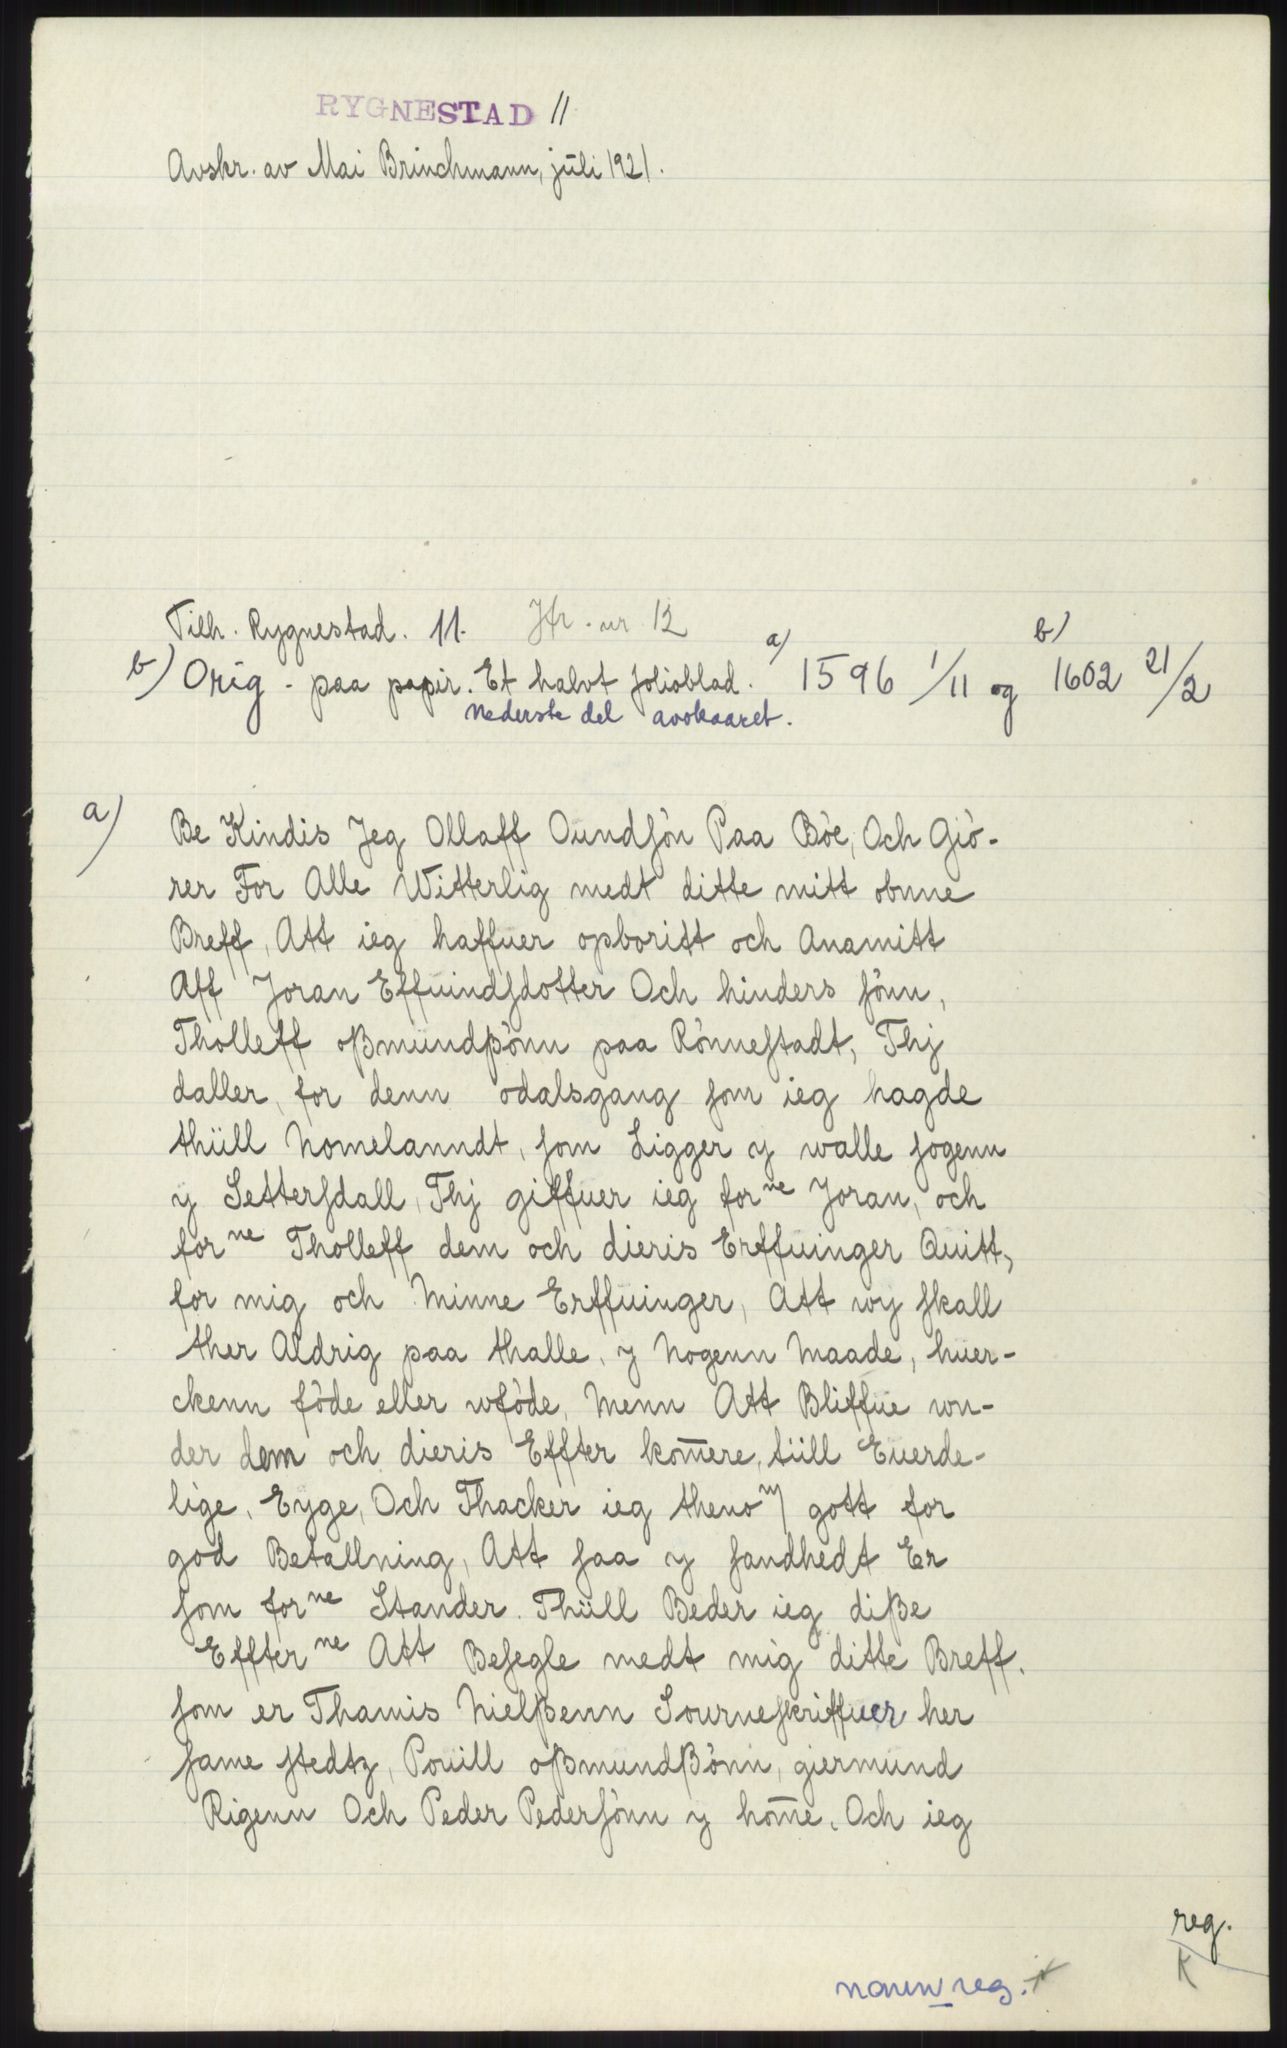 RYGNESTAD 11
Avskr. av Mai Brinchmann, juli 1921.
Tilh. Rygnestad. 11. Jfr. nr 12
b) Orig - paa papir. Et halvt folioblad. a) 1596 1/11 og b) 1602 21/2
Nederste del avskaaret.
a) Be Kindis Jeg Ollaff Oundſön Paa Böe, Och Giö-
rer For Alle Witterlig medt ditte mitt obnne
Breff, Att ieg haffuer opboritt och Anamitt
Aff Joran Effuindſdotter Och hinders ſönn,
Tholleff oßmundßönn paa Rönneſtadt, Thj
daller, for denn odalsgang ſom ieg hagde
thüll Nomelanndt, ſom Ligger y walle ſogenn
y Setterſdall, Thj giffuer ieg forne Joran, och
forne Tholleff dem och dieris Erffuinger Quitt,
for mig och Minne Erffuinger, Att wy ſkall
ther Aldrig paa thalle, y Nogenn Maade, huer-
ckenn föde eller wföde, Menn Att Bliffue wn-
der dem och dieris Effter kom̅ere, tüll Euerde-
lige, Eyge, Och Thacker ieg thenom gott for
god Betallning, Att ſaa y ſandhedt Er
ſom forne Stander. Thüll Beder ieg diße
Effterne Att Beſegle medt mig ditte Breff.
ſom er Thamis Nielßenn Sourneſkriffuer her
ſame ſtedtz, Pouill oßmundßönn, giermund
Rigenn Och Peder Pederſönn y hom̅e. Och ieg
reg.
K
navnreg.